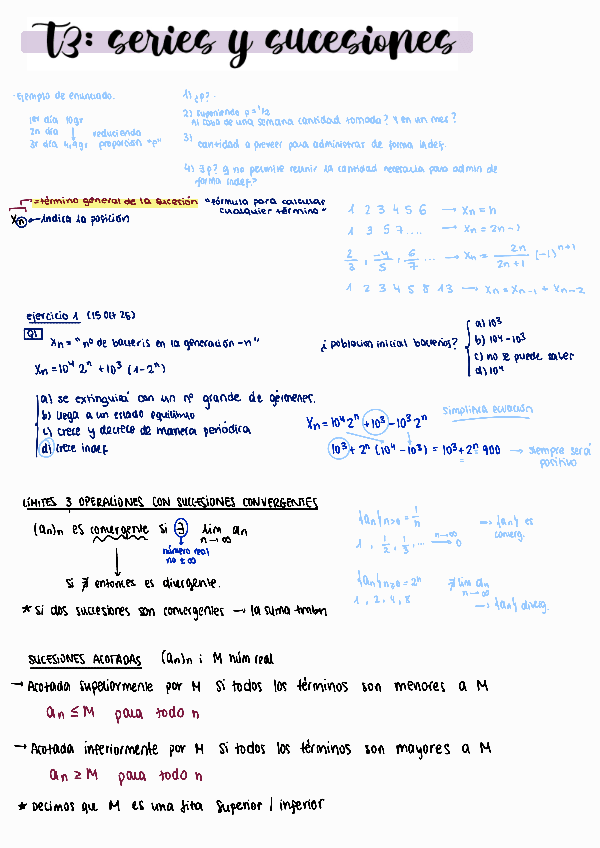 T3: series y sucesiones
-Ejemplo de enunciado.
1er día 10gr
2n día
3r día 4,9gr
reduciendo
proporción "p"
1) ¿p?.
2) suponiendo p = 1/2
al cabo de una semana cantidad tomada? Y en un mes?
3) cantidad a preveer para administrar de forma indef.
4) ∃ p? q no permite reunir la cantidad necesaria para admin de
forma indef.?
→ término general de la sucesión "fórmula para calcular
cualquier término"
Xn ← indica la posición
1 2 3 4 5 6 → Xn = n
1 3 5 7 .... → Xn = 2n - 1
2/3 , -4/5 , 6/7 ... → Xn = 2n/2n+1 (-1)^n+1
1 2 3 4 5 8 13 → Xn = Xn-1 + Xn-2
ejercicio 1 (15 Oct 25)
Q1
Xn = "nº de bacteris en la generación -n"
Xn = 10^4 2^n + 10^3 (1-2^n)
¿población inicial bacterias?
a) 10^3
b) 10^4 - 10^3
c) no se puede saber
d) 10^4
a) se extinguirá con un nº grande de gérmenes.
b) llega a un estado equilibrio
c) crece y decrece de manera periódica
d) crece indef.
Xn = 10^4 2^n + 10^3 - 10^3 2^n
simplifica ecuación
10^3 + 2^n (10^4 - 10^3) = 10^3 + 2^n 900 → siempre será
positivo
LÍMITES Y OPERACIONES CON SUCESIONES CONVERGENTES
(an)n es convergente si ∃ lim an
n→∞
número real
no ± ∞
si ∄ entonces es divergente.
* Si dos sucesiones son convergentes → la suma tmbn
{an}n>0 = 1/n
→ {an} es
converg.
1 , 1/2 , 1/3 , ... n→∞ → 0
{an}n≥0 = 2^n
∄ lim an
n→∞
1 , 2 , 4 , 8
→ {an} diverg.
SUCESIONES ACOTADAS (an)n i M núm real
→ Acotada superiormente por M si todos los términos son menores a M
an ≤ M para todo n
→ Acotada inferiormente por M si todos los términos son mayores a M
an ≥ M para todo n
* Decimos que M es una fita superior / inferior